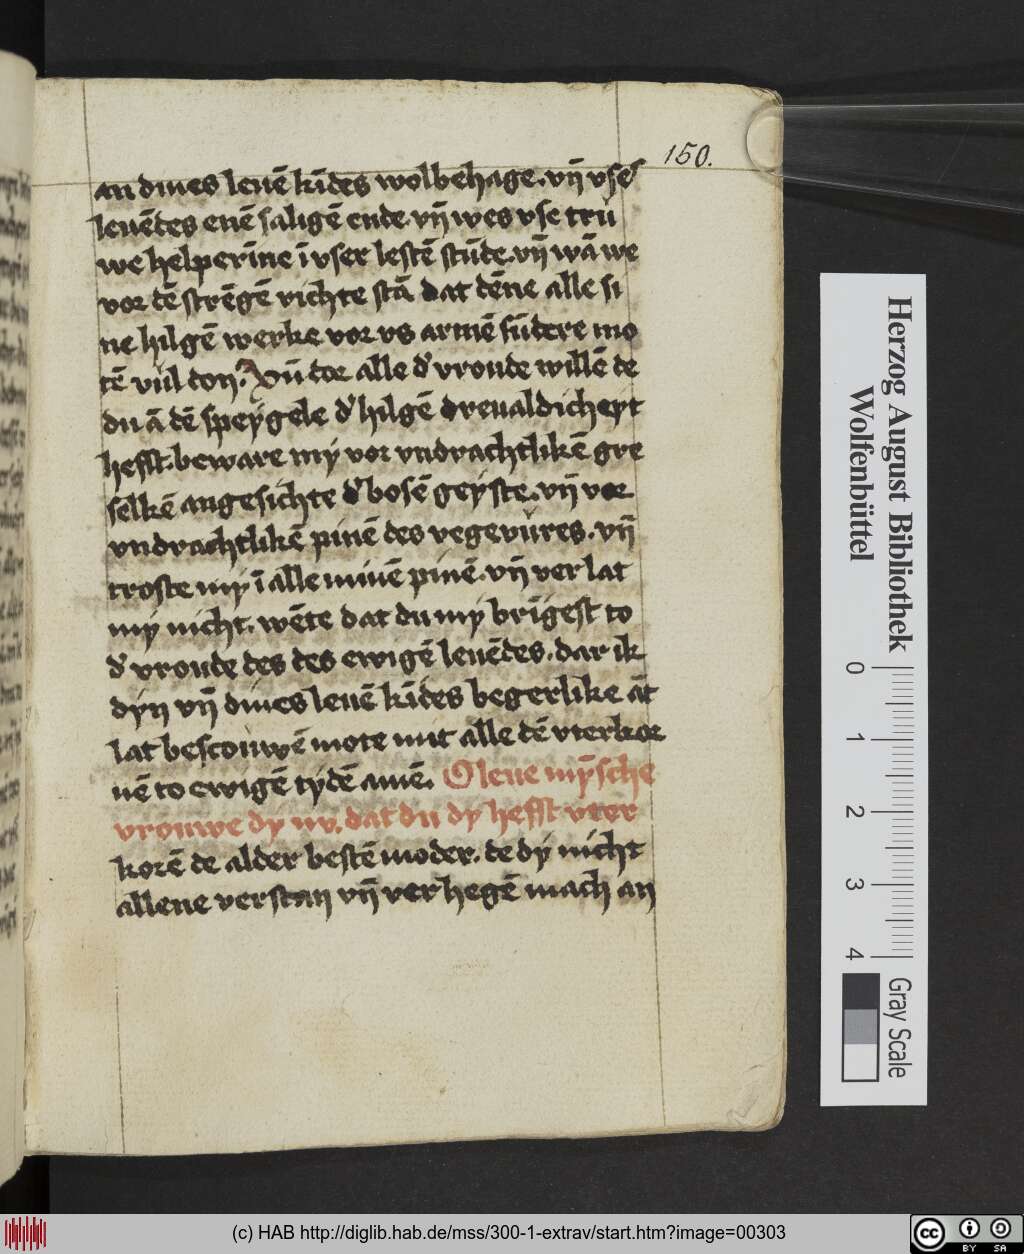 150.
an dines leuē kīdes wolbehage. vn̄ vse
leuēdes enē saligē ende. vn̄ wes vse trů
we helperīne ī vser lestē stūde. vn̄ wā we
vor dē strēgē richte stā dat dēne alle si
ne hilgē werke vor vs armē sūdere mo
tē vůl don. Vn̄ doe alle d' vroude willē de
du ā dē speygele d' hilgē dreualdicheyt
hefft. beware my vor vndrachtlikē gre
selkē angesichte d' bosē geyste. vn̄ vor
vndrachtlikē pinē des vegevůres. vn̄
troste my ī alle minē pinē. vn̄ verlat
my nicht. wēte dat du my brīgest to
d' vroude des des ewigē leuēdes. dar ik
dyn vn̄ dines leuē kīdes begerlike āt
lat bescouwē mote mit alle dē vterkor
nē to ewigē tydē amē. O leue mȳsche
vrouwe dy nv. dat du dy hefft vter
korē de alder bestē moder. de dy nicht
allene verstan vn̄ verhegē mach an
Herzog August Bibliothek
Wolfenbüttel
0 1 2 3 4
Gray Scale
(c) HAB http://diglib.hab.de/mss/300-1-extrav/start.htm?image=00303
cc BY SA